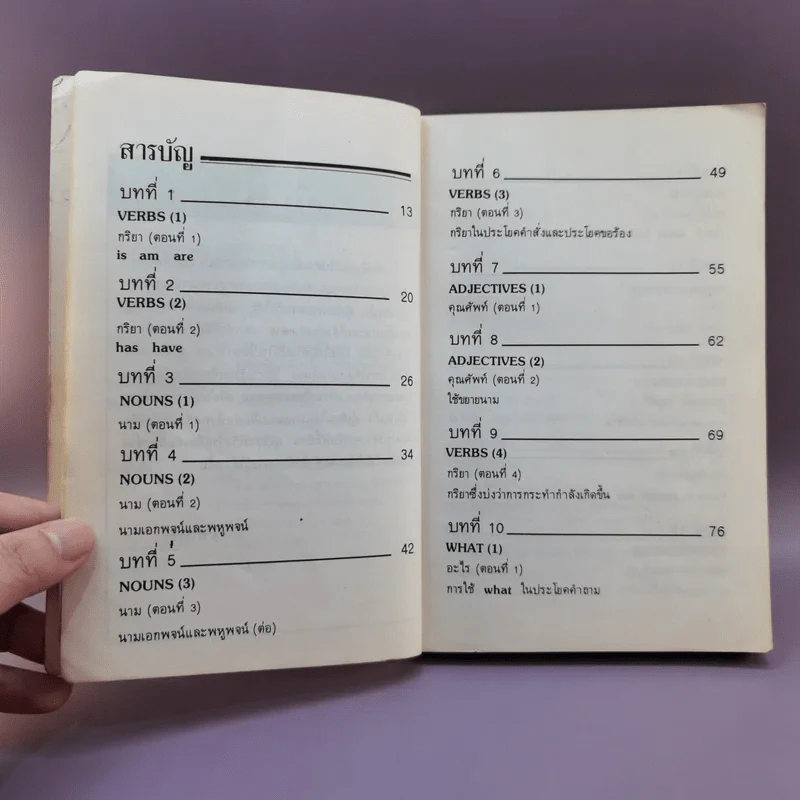 สารบัญ
บทที่ 1 13
VERBS (1)
กริยา (ตอนที่ 1)
is am are
บทที่ 2 20
VERBS (2)
กริยา (ตอนที่ 2)
has have
บทที่ 3 26
NOUNS (1)
นาม (ตอนที่ 1)
บทที่ 4 34
NOUNS (2)
นาม (ตอนที่ 2)
นามเอกพจน์และพหูพจน์
บทที่ 5 42
NOUNS (3)
นาม (ตอนที่ 3)
นามเอกพจน์และพหูพจน์ (ต่อ)
บทที่ 6 49
VERBS (3)
กริยา (ตอนที่ 3)
กริยาในประโยคคำสั่งและประโยคขอร้อง
บทที่ 7 55
ADJECTIVES (1)
คุณศัพท์ (ตอนที่ 1)
บทที่ 8 62
ADJECTIVES (2)
คุณศัพท์ (ตอนที่ 2)
ใช้ขยายนาม
บทที่ 9 69
VERBS (4)
กริยา (ตอนที่ 4)
กริยาซึ่งบ่งว่าการกระทำกำลังเกิดขึ้น
บทที่ 10 76
WHAT (1)
อะไร (ตอนที่ 1)
การใช้ what ในประโยคคำถาม